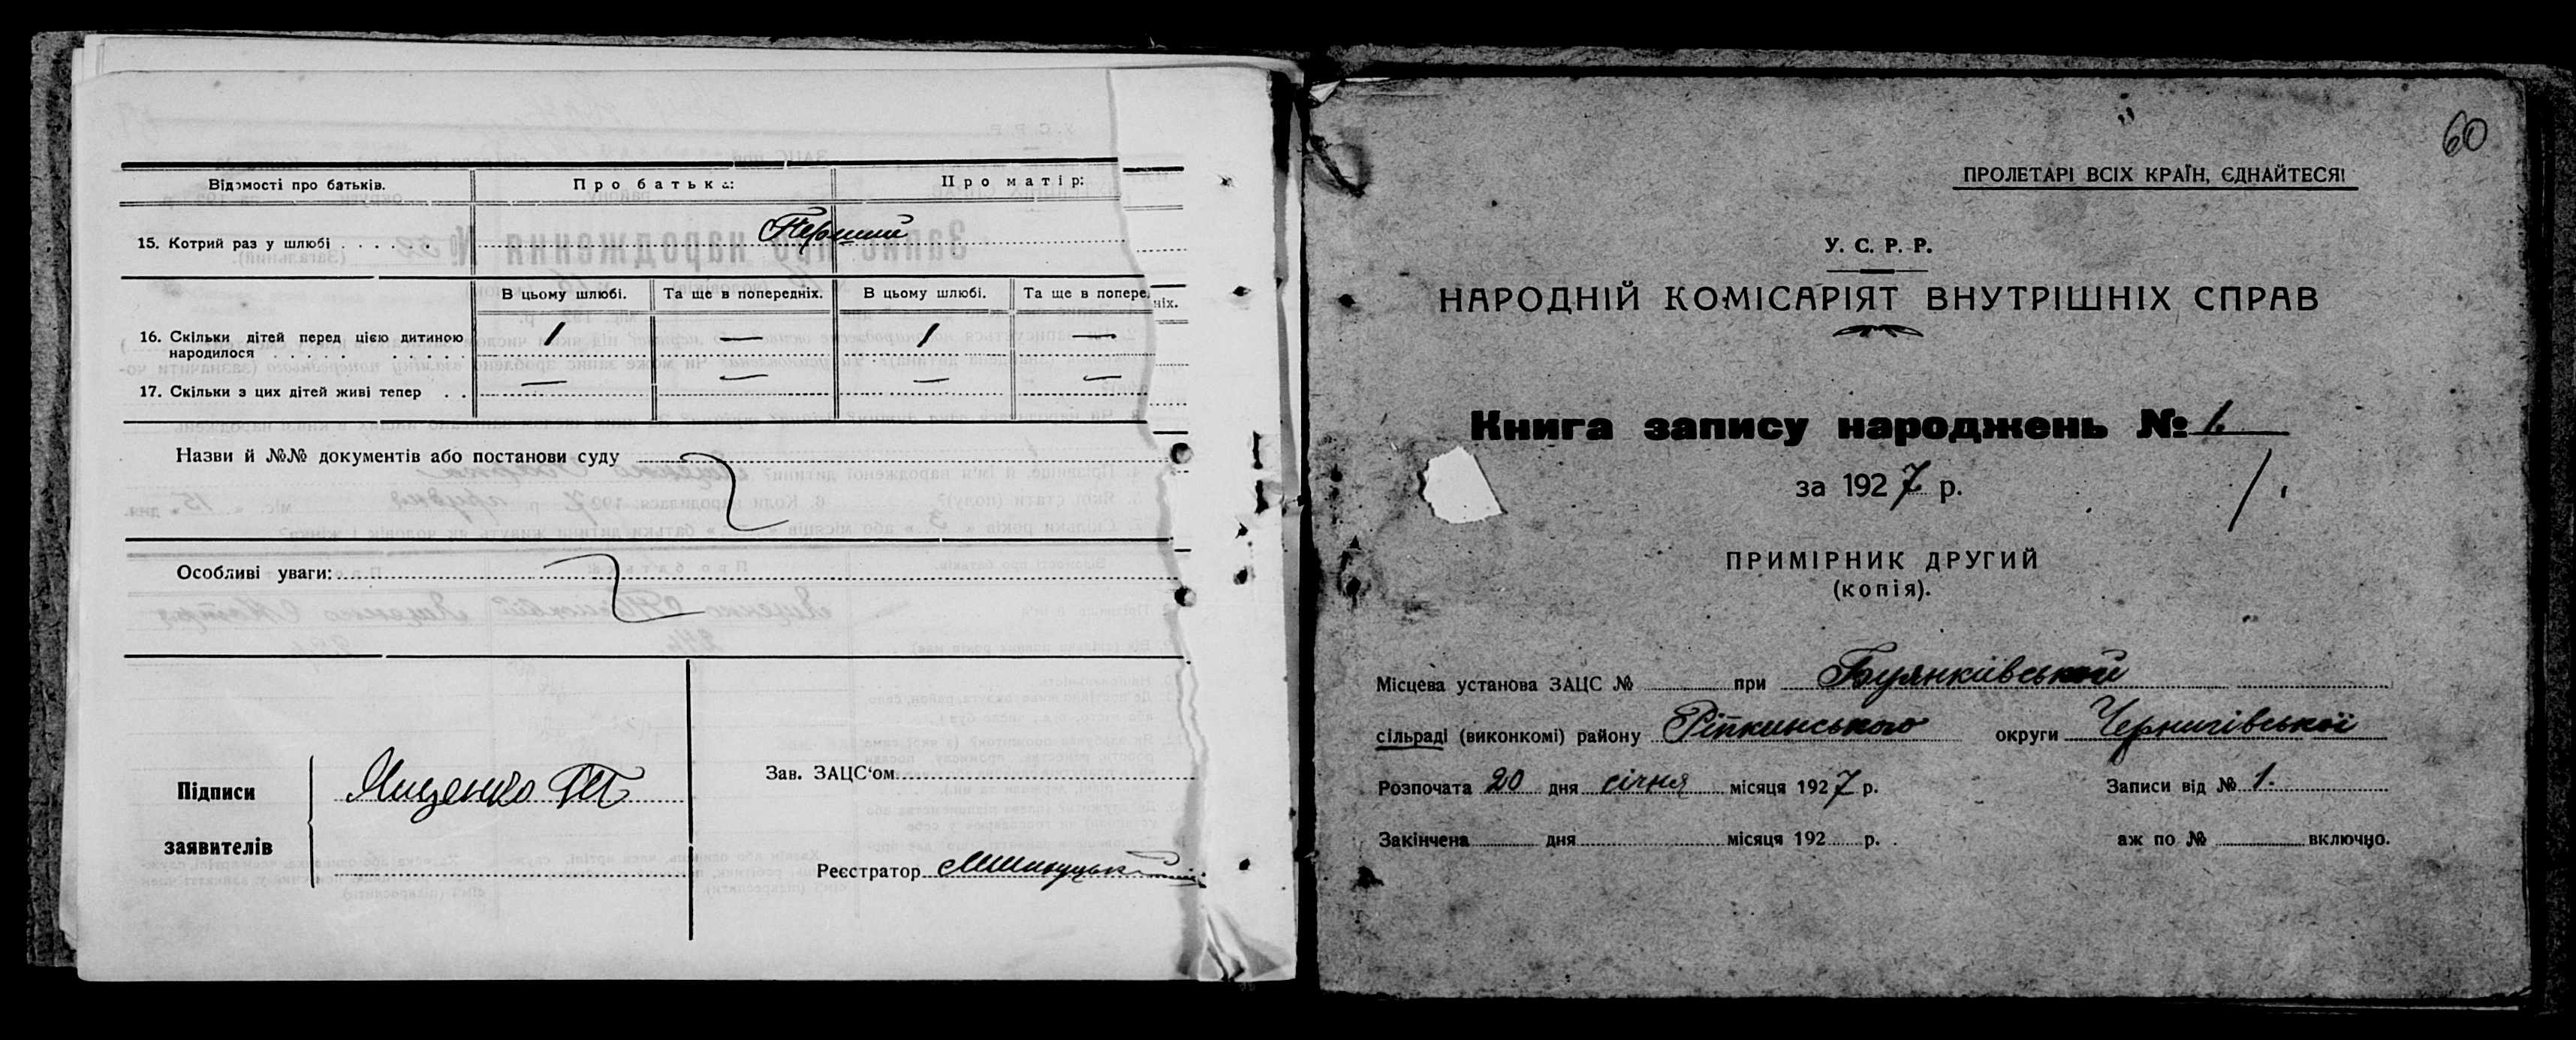 Відомості про батьків. Про батька: Про матір:
15. Котрий раз у шлюбі . . . . . . Перший
В цьому шлюбі. Та ще в попередніх. В цьому шлюбі. Та ще в попере ніх.
16. Скільки дітей перед цією дитиною 1 — 1 —
народилося . . . . . . . . . .
17. Скільки з цих дітей живі тепер . . — — — —
Назви й №№ документів або постанови суду
Особливі уваги:
Підписи
заявителів
Ященко
Зав. ЗАЦС‘ом
Реєстратор
60
ПРОЛЕТАРІ ВСІХ КРАЇН, ЄДНАЙТЕСЯ!
У. С. Р. Р.
НАРОДНІЙ КОМІСАРІЯТ ВНУТРІШНІХ СПРАВ
Книга запису народжень № 1.
за 1927 р.
1.
ПРИМІРНИК ДРУГИЙ
(копія).
Місцева установа ЗАЦС № при Буянківській
сільраді (виконкомі) району Ріпкинського округи Чернигівської
Розпочата 20 дня січня місяця 1927 р. Записи від № 1.
Закінчена дня місяця 192 р. аж по № включно.